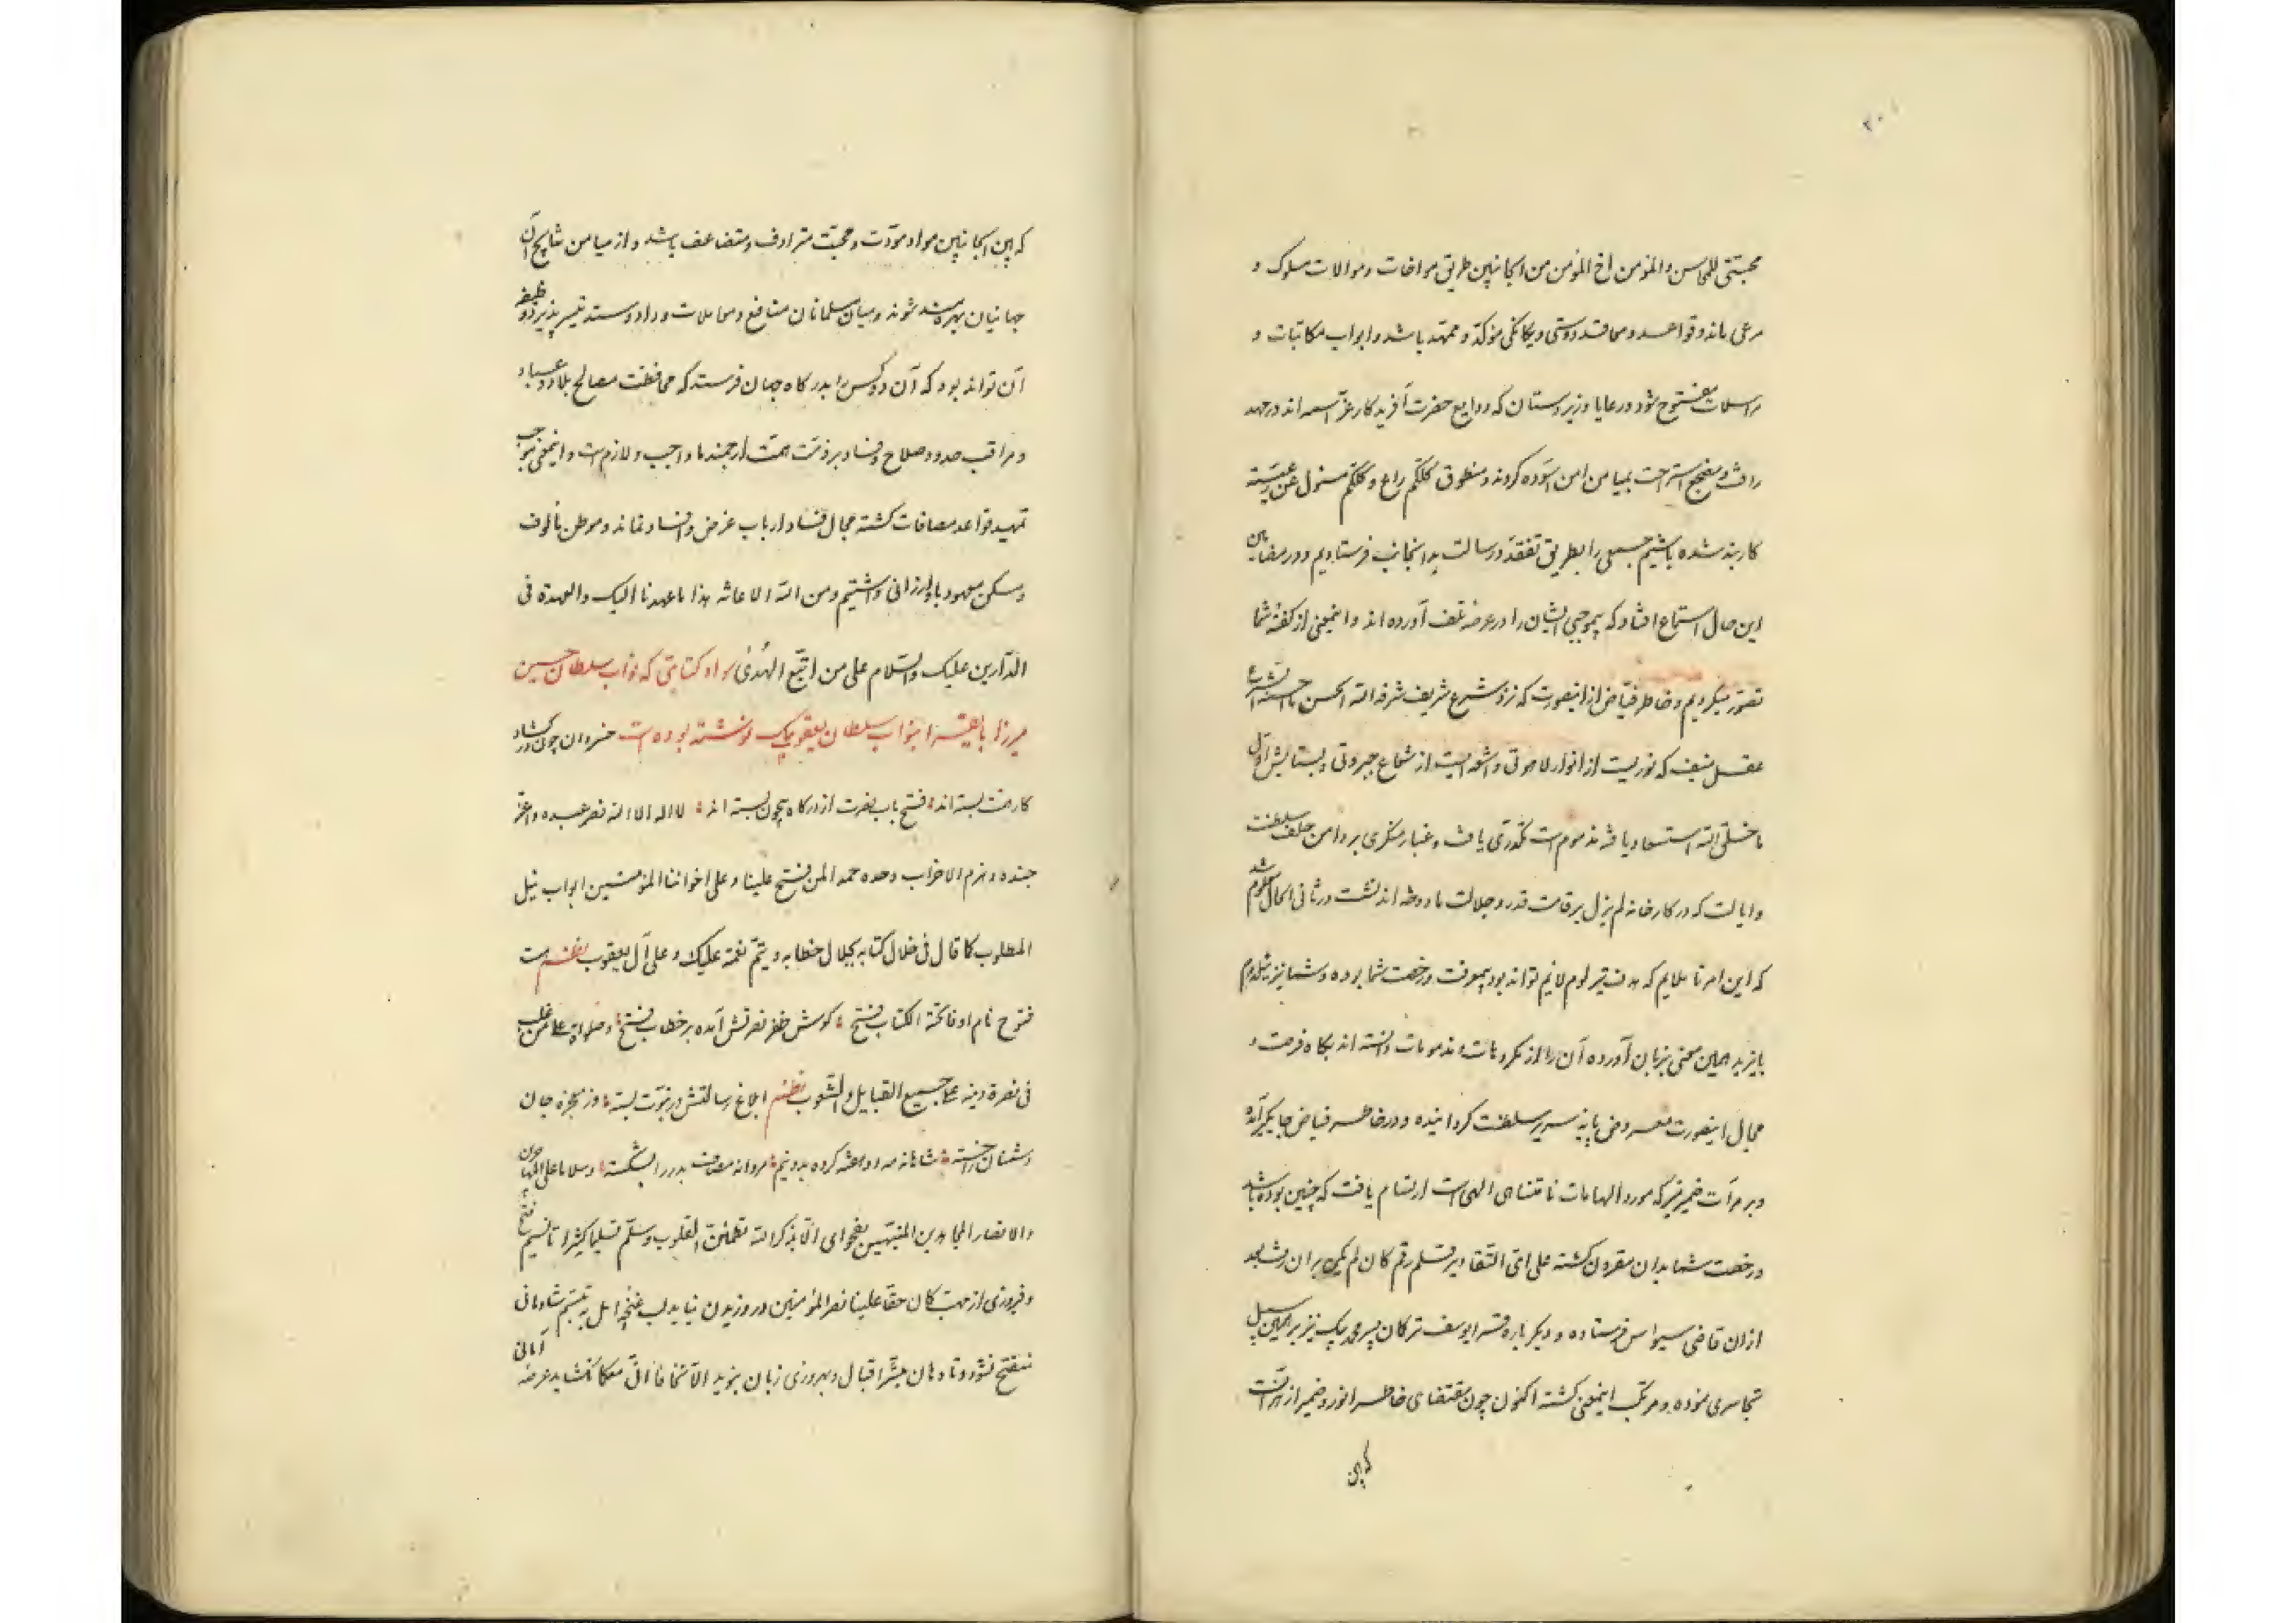 ۲۰
محبتی للجالس والمؤمن اخ المؤمن من الجانبین طریق مواخات و موالات مسلوک و
مرعی ماند و قواعد و معاقد دوستی و یکانکی مؤکد و ممهد باشد و ابواب مکاتبات و
مراسلات مفتوح شود و رعایا و زیردستان که ودایع حضرت آفریدکار عز اسمه اند در مهد
رافت و مضجع استراحت بمیامن امن آسوده کردند و منطوق کلکم راع و کلکم مسئول عن رعیته
کاربند شده باشیم جمعی را بطریق تفقد و رسالت بدانجانب فرستادیم و در مضامین
این حال استماع افتاد که بیموجبی ایشان را در عرضه تلف آورده اند و اینمعنی از کفته شما
تصور میکردیم و خاطر فیاض از اینصورت که نزد شرع شریف شرفه الله الحسن ما حسنه الشرع
عقل منیف که نوریست از انوار لاهوتی و اشعه ایست از شعاع جبروتی بستایش اول
ما خلق الله استسعاد یافته مذموم است تکدری یافت و غبار منکری بر دامن سلطنت
و ایالت که در کارخانه لم یزل بر قامت قدر و جلالت ما دوخته اند نشست و در ثانی الحال معلوم شد
که این امر ناملایم که هدف تیر لوم لائم تواند بود بیمعرفت و رخصت شما بوده و شما نیز
بایزید همین سخن بزبان آورده آن را از مکروهات و مذمومات دانسته اند بکاه فرصت و
مجال اینصورت معروض پایه سریر سلطنت کردانیده و در خاطر فیاض جایکیر آمده
و بر مرآت ضمیر منیر که مورد الهامات نامتناهی الهی است ارتسام یافت که چنین بوده باشد
و رخصت شما بدان مقرون کشته علی ای التقادیر قلم رقم کان لم یکن بر ان رانده شد
از ان قاضی سیواس فرستاده و دیکر باره قرا یوسف ترکمان پسر محمد بیک نیز بر همین سبیل
تجاسری نموده و مرتکب اینمعنی کشته اکنون چون مقتضای خاطر انور و ضمیر ازهر آنست
که بین
که بین الجانبین مواد مودت و محبت مترادف و متضاعف باشد و از میامن نتایج آن
جهانیان بهره مند شوند و میان مسلمانان منافع و معاملات و داد و ستد تیسیر پذیرد وظیفه
آن تواند بود که آن دو کس را بدرکاه جهان فرستد که محافظت مصالح بلاد و عباد
و مراقب حدود صلاح و فساد بر ذمت همت ارجمند ما واجب و لازم است و اینمعنی موجب
تمهید قواعد مصافات کشته مجال فساد ارباب غرض و افساد نماند و موطن مألوف
و مسکن معهود باو ارزانی داشتیم و من الله الاعانه هذا ما عهدنا الیک و العهدة فی
الدارین علیک والسلام علی من اتبع الهدی سواد کتابتی که نواب سلطان حسین
میرزا بایقرا بنواب سلطان یعقوب بیک نوشته بوده است خسروان چون در کشاد
کار همت بسته اند فتح باب نصرت از درکاه بیچون بسته اند لا اله الا الله نصر عبده و اعز
جنده و هزم الاحزاب وحده حمدا لمن فتح علینا و علی اخواننا المؤمنین ابواب نیل
المطلوب کما قال فی خلال کتابه بجلال خطابه و یتم نعمته علیک و علی آل یعقوب نظم هست
فتوح نام او فاتحة الکتاب فتح کوس ظفر نصرتش آمده بر خطاب فتح و صلواة علی من غلب
فی نصرة دینه علی جمیع القبایل و الشعوب نظم ابلاغ رسالتش در نبوت بسته وز خنجره جان
دشمنان خسته شاهانه مه دو هفته کرده بدو نیم مردانه مصاف بدر را بشکسته و سلاما علی المهاجرین
والانصار المجاهدین المنتبهین بفحوای الا بذکر الله تطمئن القلوب و سلم تسلیما کثیرا تا نسیم فتح
و فیروزی از مهب کان حقا علینا نصر المؤمنین در وزیدن نیاید لب غنچه امل به تبسم شادمانی
منفتح نشود و تا دهان مبشر اقبال و بهروزی زبان بنوید لا تخافا اننی معکما نکشاید عرضه امانی